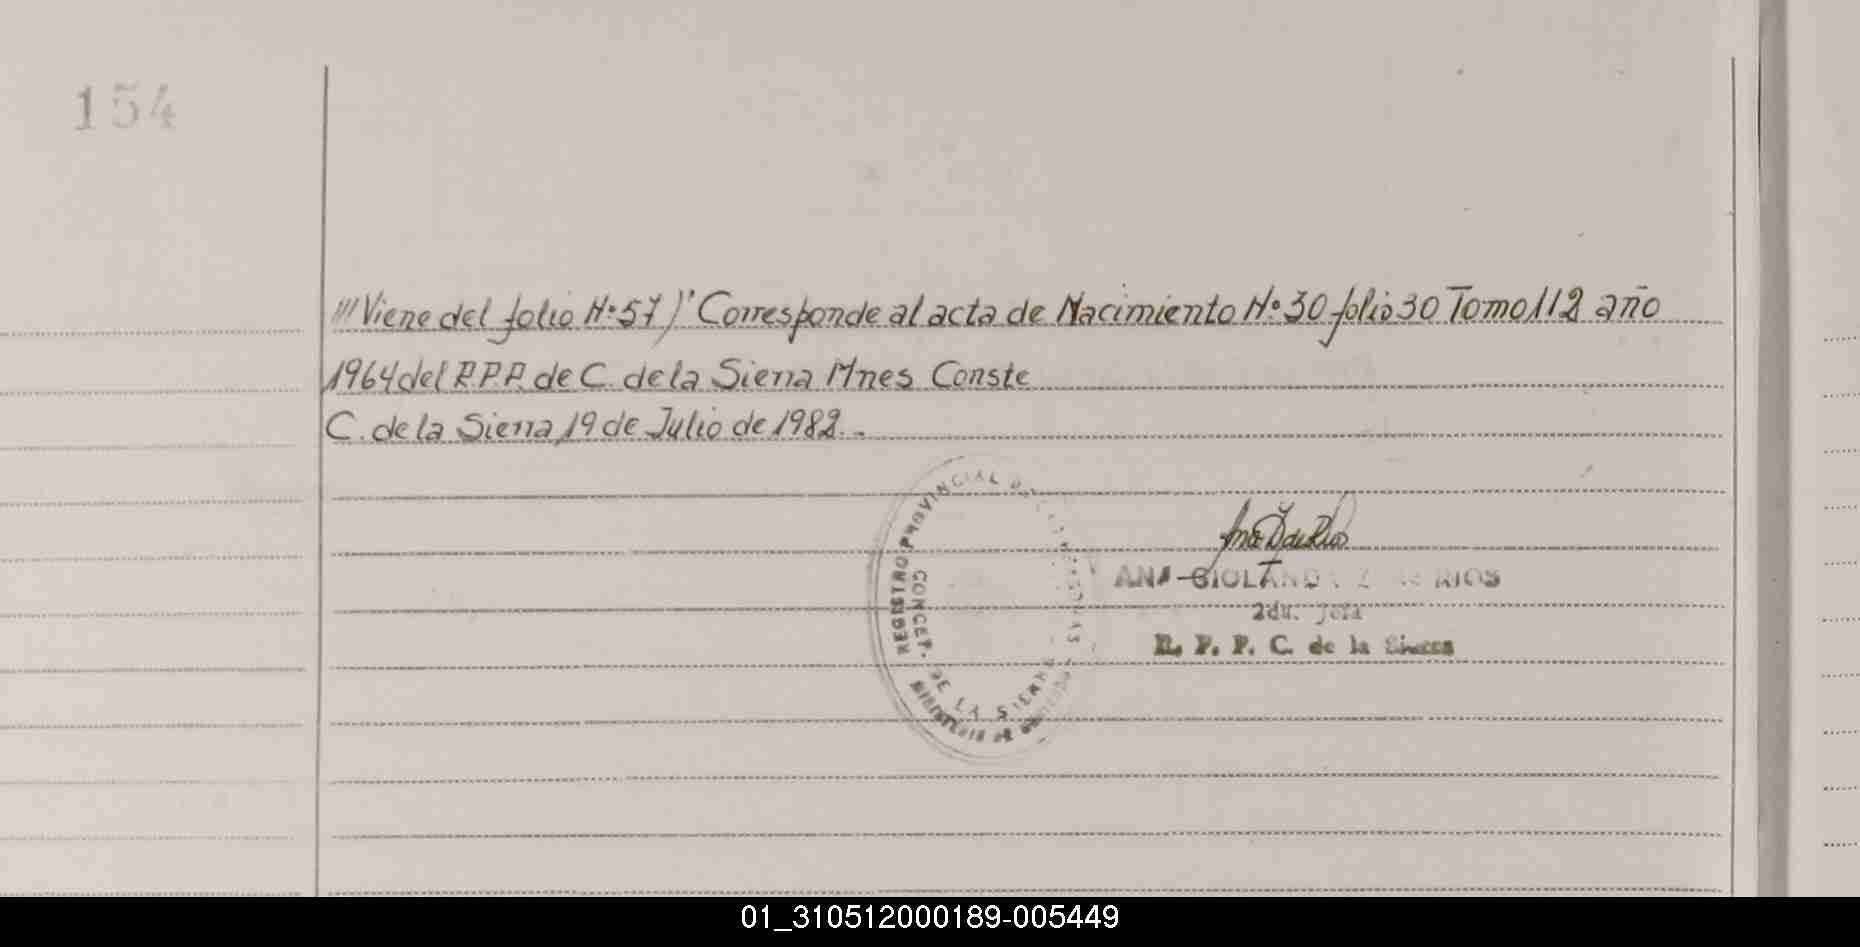 154
///Viene del folio Nº57)" Corresponde al acta de Nacimiento Nº30 folio 30 Tomo 112 año
1964 del R.P.P. de C. de la Sierra Mnes Conste
C. de la Sierra, 19 de Julio de 1982.-
REGISTRO PROVINCIAL DE
CONCEP. DE LA SIERRA
MINISTERIO DE
ANA RIOS
2da. Jefa
R. P. P. C. de la Sierra
01_310512000189-005449